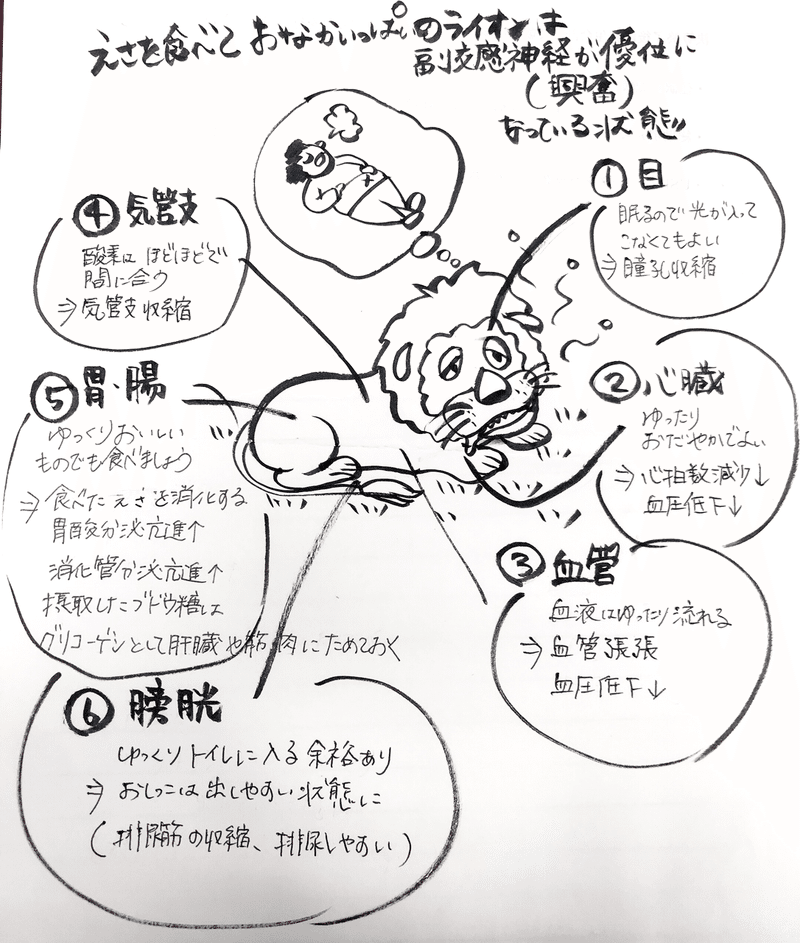 えさを食べて おなかいっぱいのライオンは
副交感神経が優位に
(興奮)
なっている状態!!
① 目
眠るので光が入って
こなくてもよい
⇒瞳孔収縮
② 心臓
ゆったり
おだやかでよい
⇒心拍数減少↓
血圧低下↓
③ 血管
血液はゆったり流れる
⇒血管張張
血圧低下↓
④ 気管支
酸素は ほどほどで
間に合う
⇒気管支収縮
⑤ 胃・腸
ゆっくりおいしい
ものでも食べましょう
⇒食べたえさを消化する
胃酸分泌亢進↑
消化管分泌亢進↑
摂取したブドウ糖は
グリコーゲンとして肝臓や筋肉にためておく
⑥ 膀胱
ゆっくりトイレに入る余裕あり
⇒おしっこは出しやすい状態に
(排尿筋の収縮、排尿しやすい)